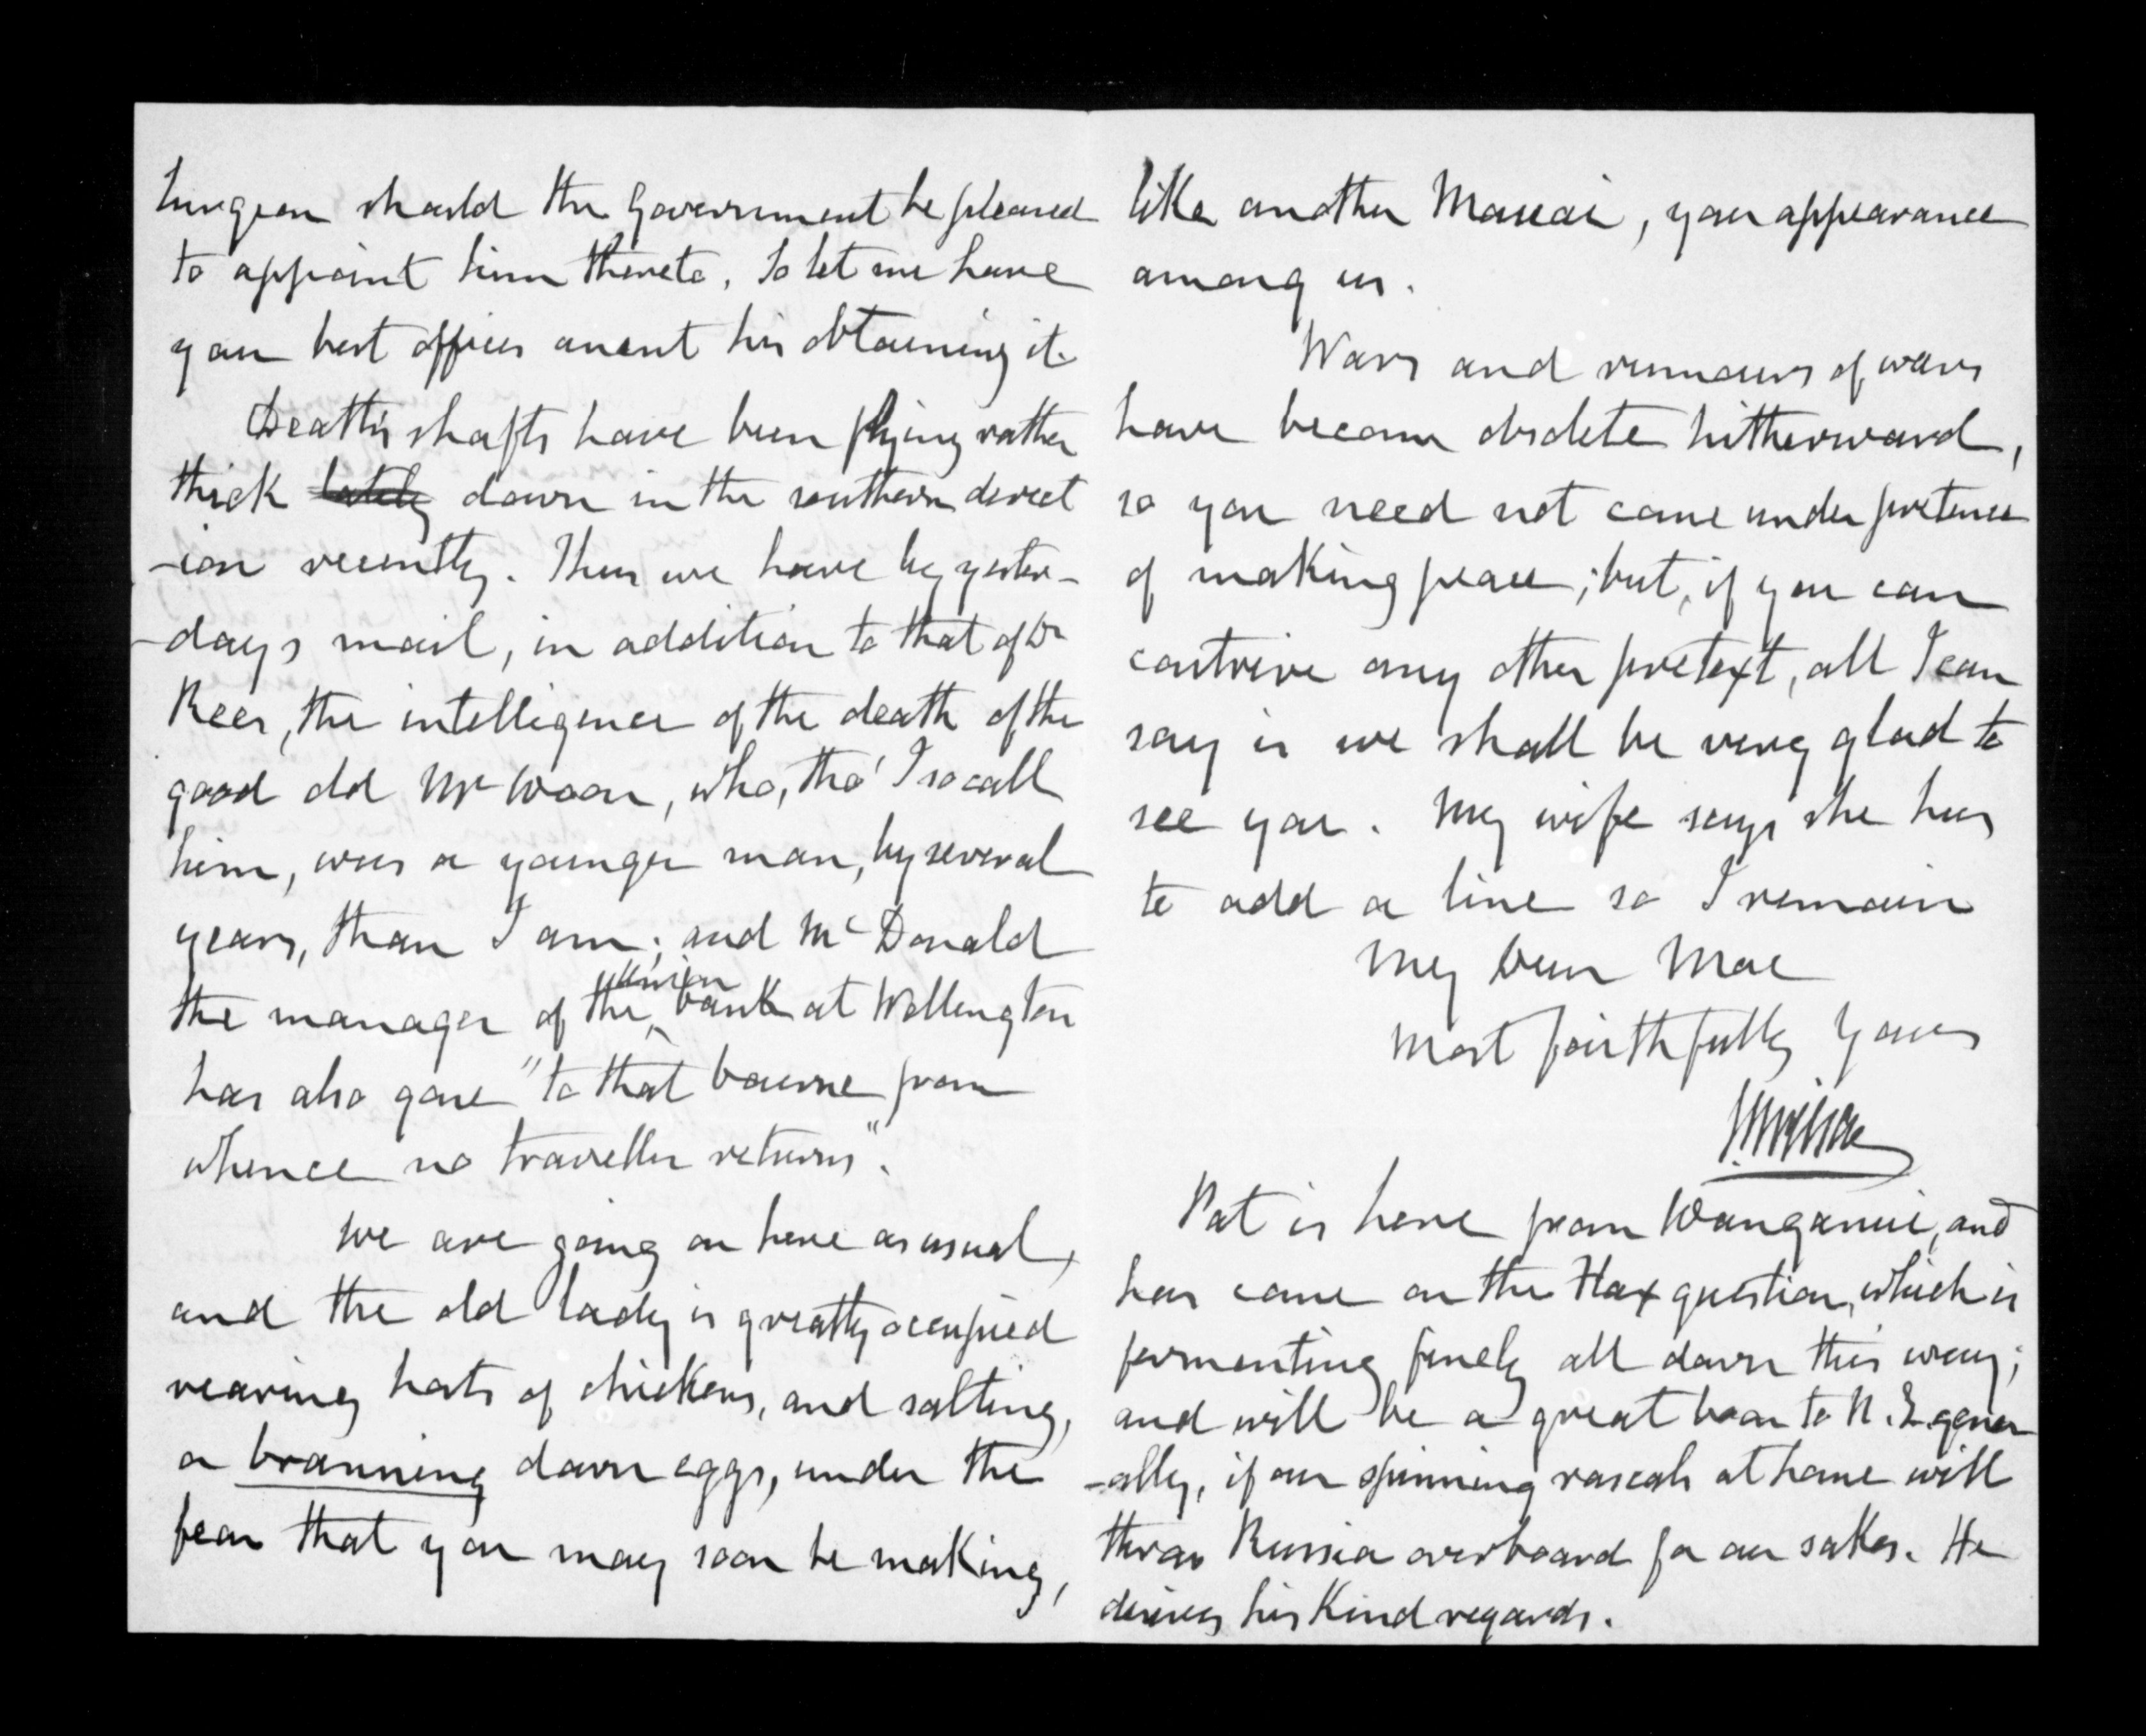 Surgeon should the Government be pleased
to appoint him thereto. So let me have
your best offices anent his obtaining it.
Death's shafts have been flying rather
thick lately down in the southern direct
-ion recently. Thus we have by yester-
-days mail, in addition to that of Dr
Rees, the intelligence of the death of the
good old Mr Woon, who, tho' I so call
him, was a younger man, by several
years, than I am; and McDonald
the manager of the Union bank at Wellington
has also gone "to that bourne from
whence no traveller returns".
We are going on here as usual,
and the old lady is greatly occupied
rearing hosts of chickens, and salting,
or branning down eggs, under the
fear that you may soon be making,
like another, your appearance
among us.
Wars and rumours of wars
have become obsolete hitherward,
so you need not come under pretence
of making peace; but, if you can
contrive any other pretext, all I can
say is we shall be very glad to
see you. My wife says she has
to add a line so I remain
My Dear Mac
Most faithfully Yours
Pat is here from Wanganui, and
has come on the Flax question, which is
fermenting finely all down this way;
and will be a great boon to N.Z gener
-ally, if our spinning rascals at home will
throw Russia overboard for our sakes. He
desires his Kind regards.